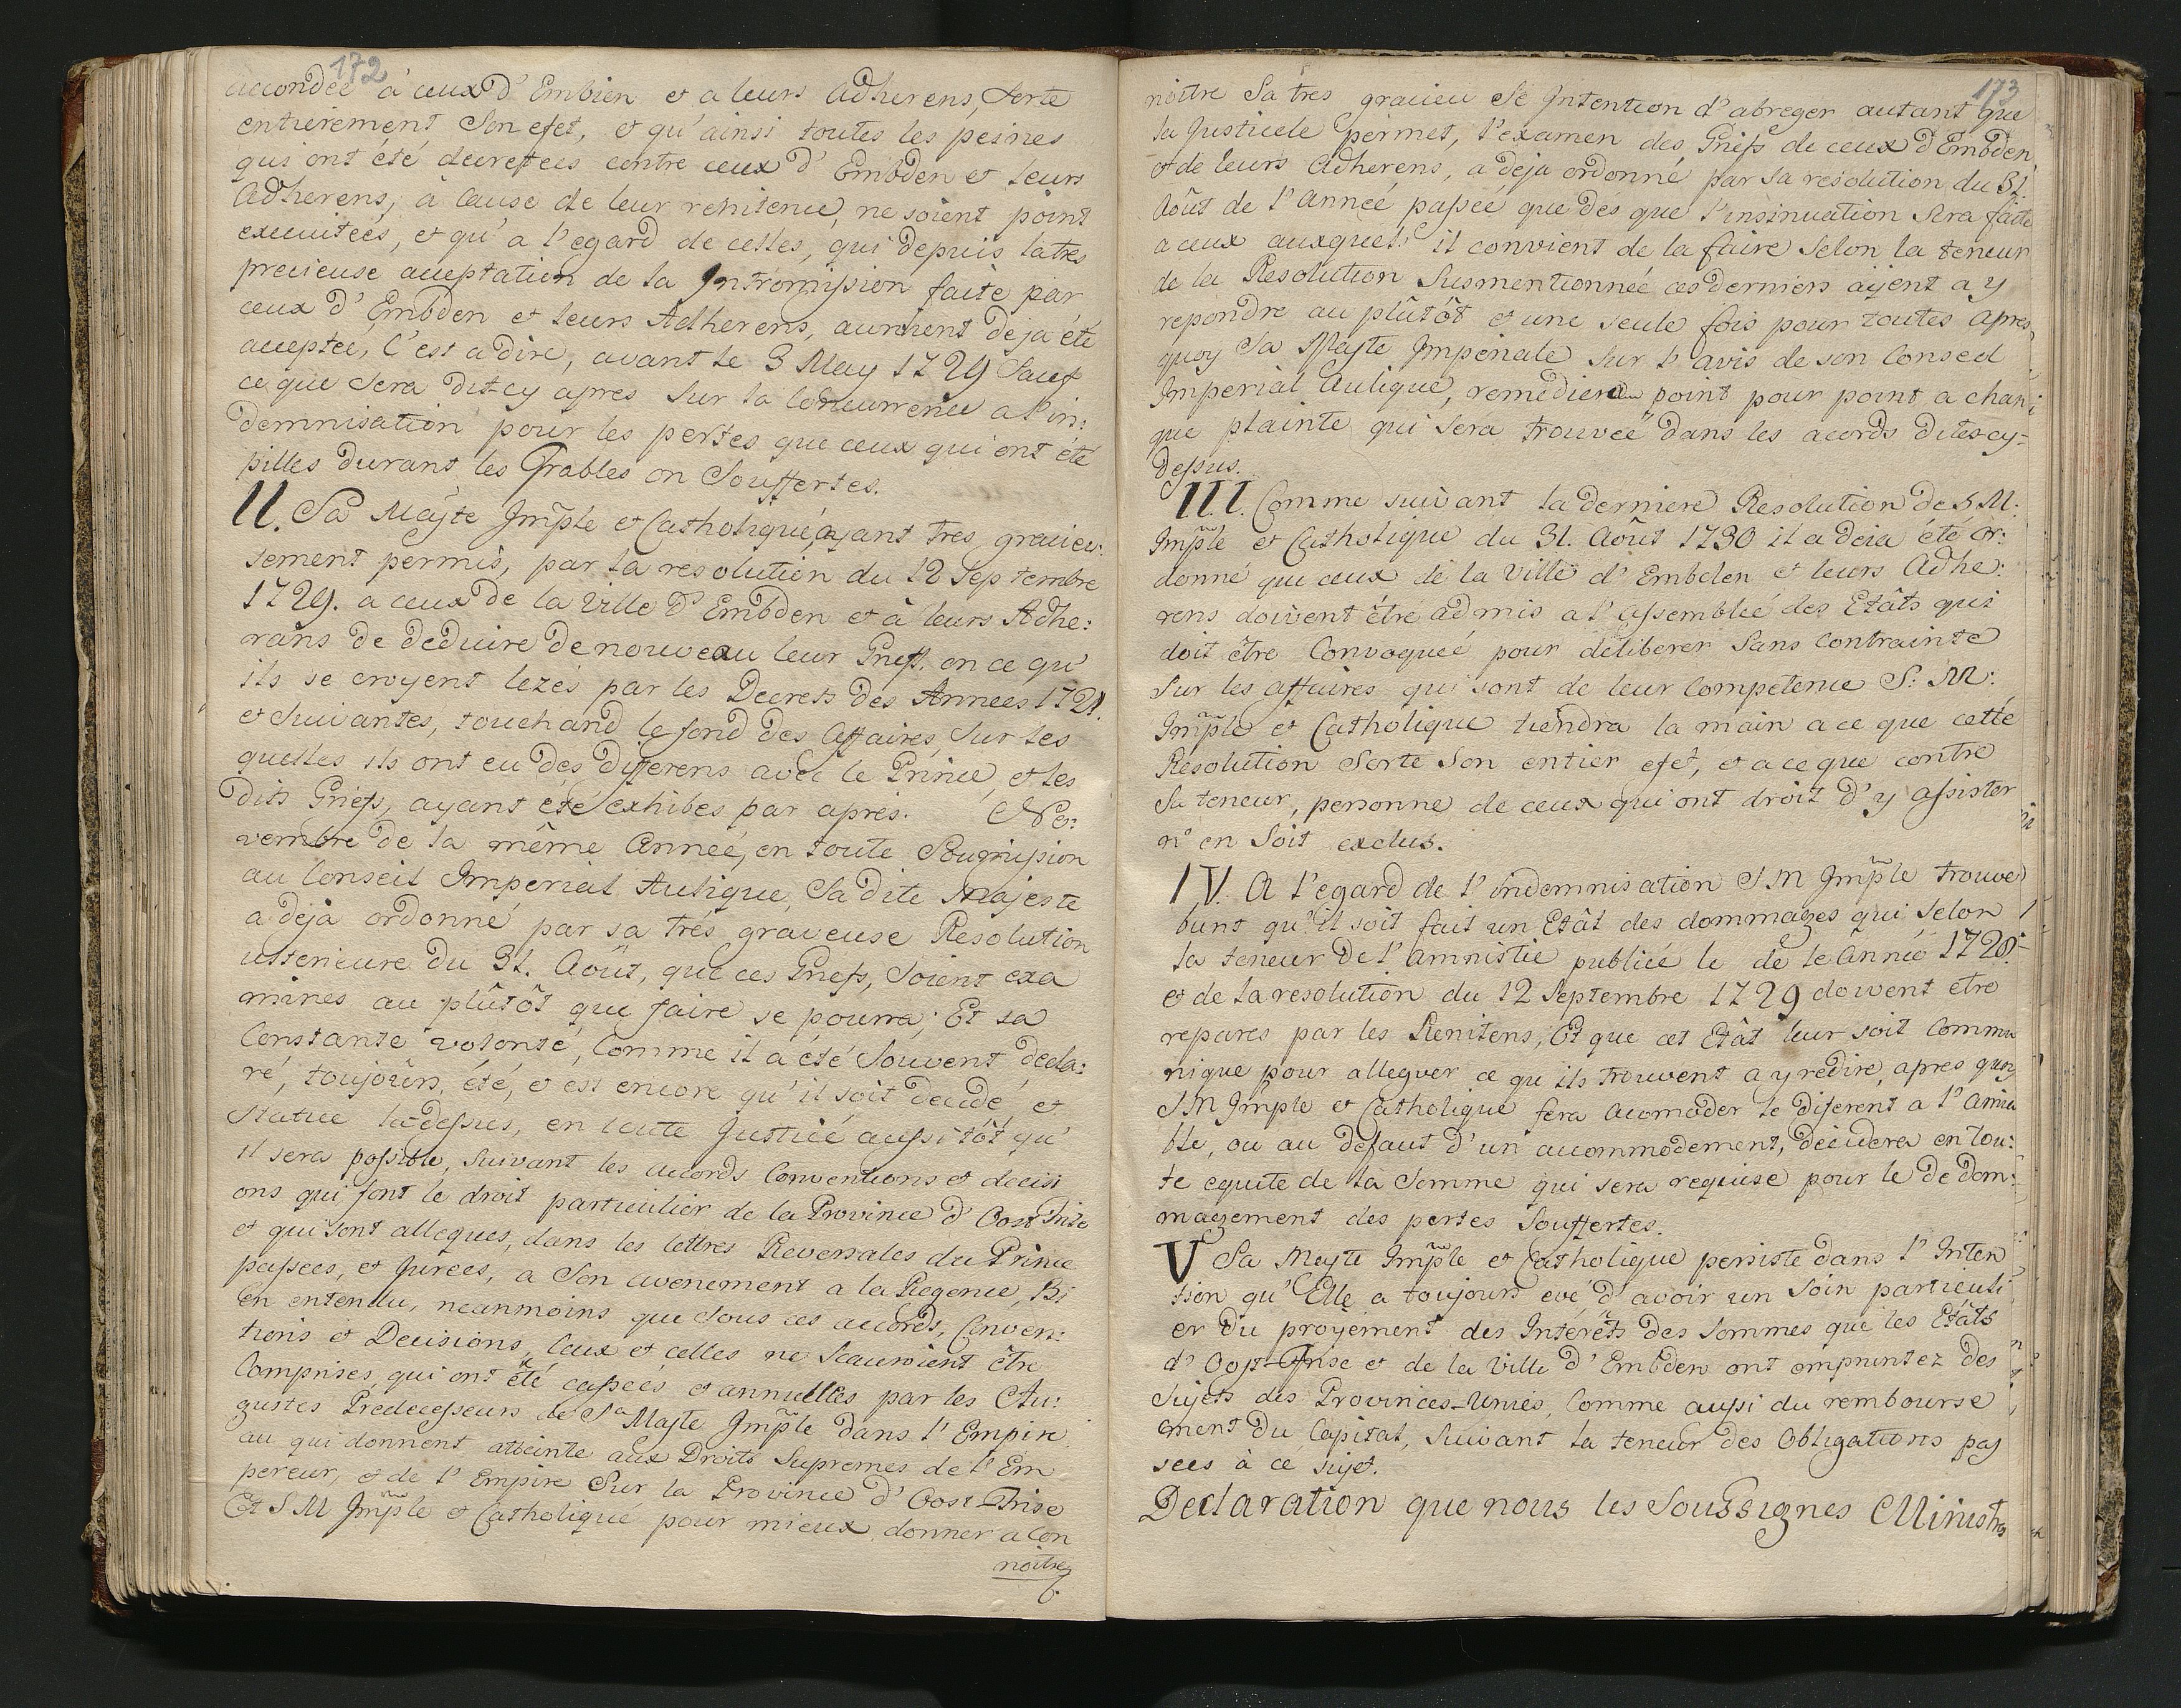 172
accordée à ceux d' Embien et a leurs Adherens, sorte
entierement Son efet, et qu'ainsi toutes les peines
qui ont été decretées contre ceux d' Embden et leurs
Adherens, à Cause de leur renitence, ne soient point
executées, et qu' a l'egard de celles, qui depuis la tres
precieuse acceptation de la Intromission faite par
ceux d' Embden et leurs Adherens, auroient deja été
acceptée, C'est a dire, avant le 3 May 1729 Sauf
ce que Sera dit-cy apres Sur la Concurrence a l'in:
demnisation pour les pertes que ceux qui ont été
pilles durant les Trables on Souffertes.
II. Sa Majte Jmple et Catholique, ayant tres gracieu:
sement permis, par sa resolution du 12 Septembre
1729. a ceux de la Ville d' Embden et à leurs Adhe:
rans de deduire de nouveau leur Griefs. en ce qu'
ils se croyent lezés par les Decrets des Annees 1721.
et Suivantes, touchand le fond des Affaires, Sur les
quelles ils ont eu des differens avec le Prince, et les
dits Griefs, ayant été exhibes par aprés. No:
vembre de la même Année, en toute Soumission
au Conseil Imperial Aulique, Sa dite Majeste
a deja ordonné par sa trés gracieuse Resolution
ulterieure du 31. Août, que ces Griefs, Soient exa
mines au plûtôt que faire se pourra; Et sa
Constante volonté, Comme il a été Souvent decla:
ré, toujours, été, et est encore qu' il soit decidé, et
Statué la-dessus, en toute Justice aussitôt qu'
il sera possible, Suivant les accords Conventions et decisi
ons qui font le droit particulier de la Province d' Oost Frise
et qui sont alleques, dans les lettres Reversales du Prince
passées, et Jurees, a Son avenement a la Regence, Bi
en entendu, neanmoins que Sous ces accords, Conven:
tions et Decisions, Ceux et celles ne Scauroient être
Comprises, qui ont été cassées et annullés par les Au:
gustes Predecesseurs de Sa Majte Jmple dans l' Empire
au qui donnent atteinte aux Droits Supremes de l' Em
pereur, et de l' Empire Sur la Province d' Oost-Frise
Et S M Jmple et Catholique pour mieux donner a Con
noitre
173
noitre Sa tres gracieu Se Intention d'abreger autant que
la Justicele permet, l'examen des Griefs de ceux d'Embden,
et de leurs Adherens, a deja ordonné par sa resolution du 31
Août de l' Année passée que des que l'insinuation Sera faite
a ceux auxquels il convient de la faire Selon la teneur
de la Resolution Susmentionnée ces derniers aijent a y
repondre au plûtôt et une seule fois pour toutes apres
quoy Sa Majte Imperiale Sur l' avis de son Conseil
Imperial Aulique, remediera point pour point a chan:
que plainte qui Sera trouvée dans les acords dites cy-
dessus.
III. Comme suivant la derniere Resolution de S M:
Jmple et Catholique du 31. Août 1730 il a deia été or:
donné que ceux de la Ville d' Embden et leurs Adhe:
rens doivent être admis a l' Assemblée des Etâts qui
doit être Convoqueé pour deliberer Sans Contrainte
Sur les affaires qui sont de leur Competence S: M:
Jmple et Catholique tiendra la main a ce que cette
Resolution Sorte Son entier efet, et a ce que contre
Sa teneur, personne de ceux qui ont droit d' y assister
n' en Soit exclus.
IV. A l'egard de l' indemnisation S M Jmple trouve
bunt qu' il soit fait un Etât des dommages qui selon
la teneur de l' Amnistie publiée le de le Année 1728.
et de la resolution du 12 Septembre 1729 doivent etre
repares par les Renitens, Et que cet Etât leur soit Commu
nique pour alleguer ce qu ils trouvent a y redire, apres quoy
S M Jmple et Catholique fera acomoder le diferent a l' Amia
ble, ou au defaut d'un accommodement, decidera en tou:
te equite de la Somme qui sera requise pour le dedom:
magement des pertes Souffertes.
V Sa Majte Jmple et Catholique persiste dans l' Inten
tion qu' Elle a toujours evé d' avoir un Soin particuli
er du proyement des Intérêts des Sommes que les Etâts
d' Oost-Frise et de la Ville d' Embden ont empruntez des
Sujets des Provinces-Unies, Comme aussi du rembourse
ment du Capital, Suivant la teneur des Obligations pas
sees à ce sujet.
Declaration que nous les Soussignes Ministres